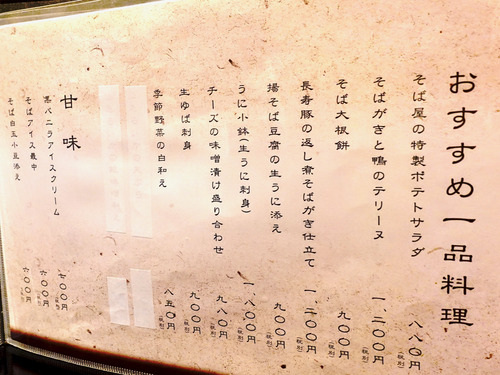 おすすめ一品料理
そば屋の特製ポテトサラダ 八八〇円(税別)
そばがきと鴨のテリーヌ 一、二〇〇円(税別)
そば大根餅 九〇〇円(税別)
長寿豚の返し煮そばがき仕立て 一、二〇〇円(税別)
揚そば豆腐の生うに添え 九〇〇円(税別)
うに小鉢(生うに刺身) 一、八〇〇円(税別)
チーズの味噌漬け盛り合わせ 九八〇円(税別)
生ゆば刺身 九〇〇円(税別)
季節野菜の白和え 八五〇円(税別)
甘味
黒バニラアイスクリーム 七〇〇円(税別)
そばアイス最中 六〇〇円(税別)
そば白玉小豆添え 六〇〇円(税別)